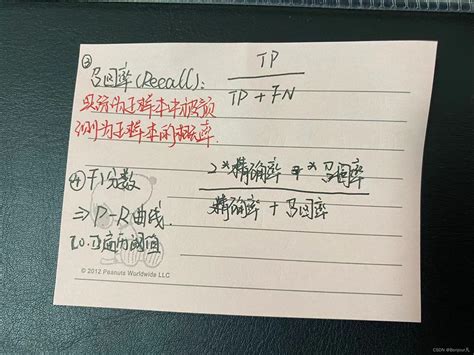 ③
召回率(Recall): TP / TP + FN
实际为正样本中被预
测为正样本的概率.
④ F1分数 2*精确率 * 召回率 / 精确率 + 召回率
⇒ P-R曲线.
© 2012 Peanuts Worldwide LLC
CSDN @Benjour凡